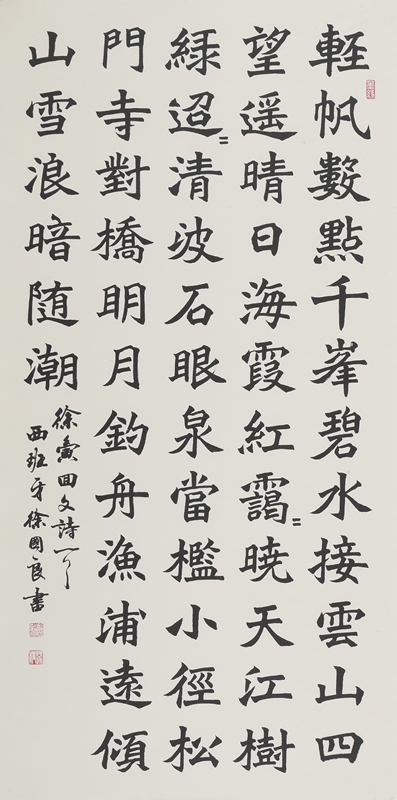 軽帆數點千峯碧水接雲山四
望遥晴日海霞紅靄〻暁天江樹
緑迢〻清波石眼泉當檻小徑松
門寺對橋明月釣舟漁浦遠傾
山雪浪暗随潮
徐夤回文詩一首
西班牙徐國良書